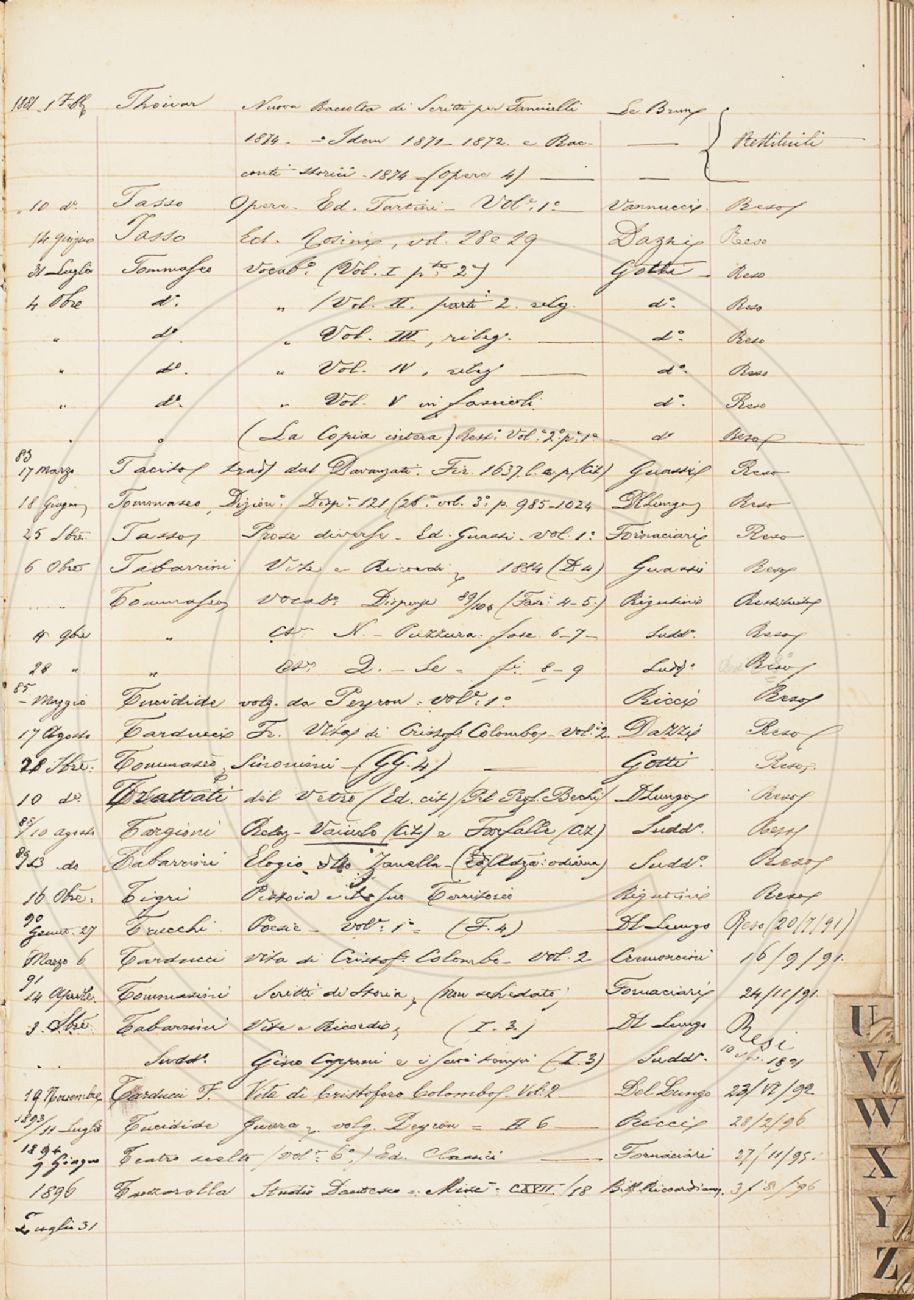 1881 Thouar Nuova Raccolta di Scritti per Fanciulli Le Brun
1874. = Idem 1871-1872. e Rac- — Restituiti
conti storici - 1874 - (Opere 4) — —
10 do. Tasso Opere. Ed. Tartini - Vole. 1o Vannucci Reso
14 Giugno Tasso Ed. Rosini, vol. 28 e 29 Dazzi Reso
31 Luglio Tommaseo Vocabo. (Vol. I pte 2a) Gotti Reso
4 8bre do. „ (Vol. II. parte 2. releg. do. Reso
„ do. „ Vol. III, rileg. — do. Reso
„ do. „ Vol. IV, releg. — do. Reso
„ do. „ Vol. V in fascicoli do. Reso
(La Copia intera) Rest. Vol. 2o p. 1a do Reso
83
17 Marzo Tacito trad dal Davanzati. Fir. 1637 (Cit) Guasti Reso
18 Giugno Tommaseo, Dizion. Disp. 121 (26a. vol. 3o. p. 985-1024 DLungo Reso
25 Tasso Prose diverse - Ed. Guasti - vol. 1o Fornaciari Reso
6 8bre Tabarrini Vite e Ricordi 1884 Guasti Reso
Tommaseo Vocabo. Dispense 89/106 (Fasc. 4-5) Rigutini Restituito
4 9bre „ N - Puzzura. fasc. 6-7- Sudd. Reso
28 „ „ Q. - Se - fi. 8-9 Sudd. Reso
85
- Maggio Tucidide volg. da Peyron: Vole. 1o Ricci Reso
17 Agosto Tarducci Fr. Vita di Cristof. Colombo vol. 2 Dazzi Reso
28 Tommaseo, Sinonimi (GG. 4) — Gotti Reso
10 do. Trattati del Vetro (Ed. cit) Pel Prof. Bechi DLungo Reso
10 Agosto Targioni Relaz - Vaiuolo (Cit) e Farfalle Suddo. Reso
do Tabarrini Elogio dello Zanella Suddo. Reso
16 8bre. Tigri Pistoia e il suo Territorio Rigutini Reso
90
Genno. 27 Trucchi Poesie - vole. 1o = (F. 4) Dl Lungo Reso (20/7/91)
Marzo 6 Tarducci Vita di Cristofo. Colombo - Vol. 2 16/9/91.
91
14 Aprile Tommasini Scritti di Storia, (Non schedato) Fornaciari 24/11/91.
Tabarrini Vite e Ricordi (I. 3.) Dl Lungo Resi
Suddo. Gino Capponi e i suoi tempi (I. 3) Suddo.
19 Novembre Tarducci F. Vita di Cristoforo Colombo. Vol. 2 Del Lungo 23/VI/92
1893/11 Luglio Tucidide Guerra, volg. Peyron = H 6 — Ricci 28/2/96
9 Giugno Teatro scelto (Vole. 6o) Ed. Classici — Fornaciari 27/11/95.
1896 Tuttarolla Studio Dantesco - Misc. CXVII/18 B. Riccardiana. 3/8/96
Luglio 31
U
V
W
X
Y
Z